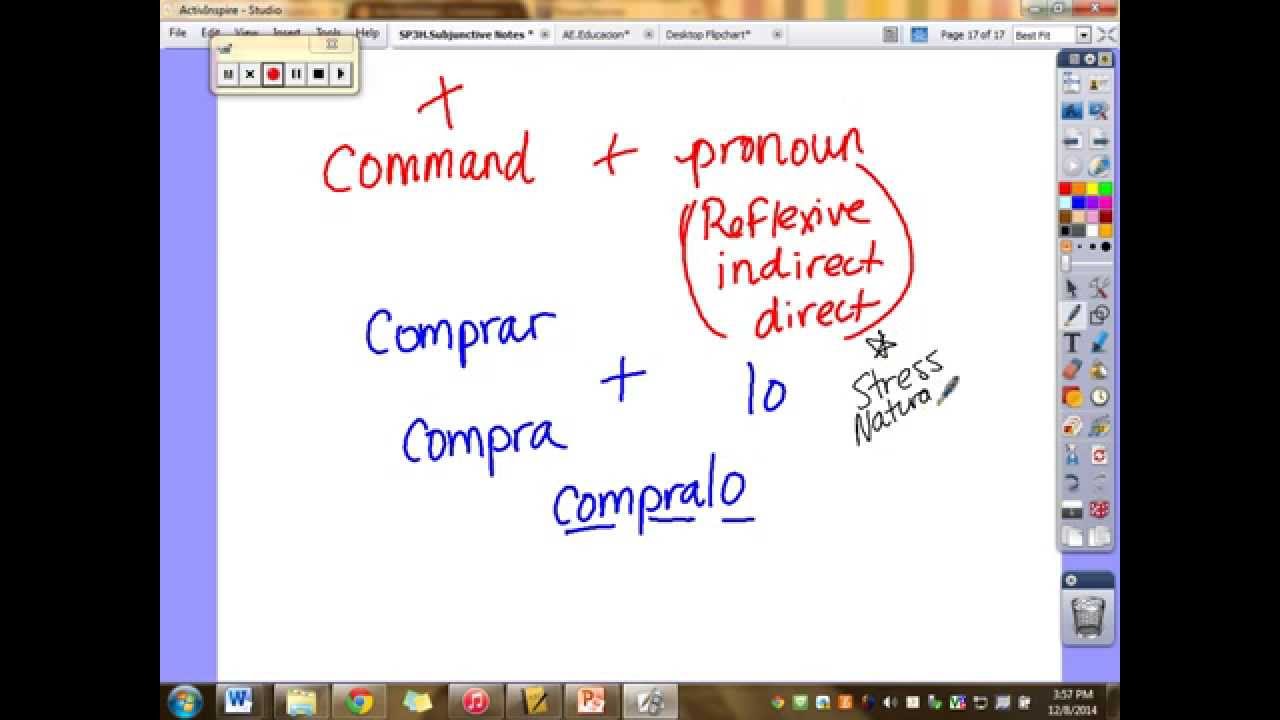 ActivInspire - Studio
File Edit View Insert Tools Help SP3H.Subjunctive Notes * AE.Educacion* Desktop Flipchart* Page 17 of 17 Best Fit
+
Command + pronoun
(Reflexive
indirect
direct)
Comprar
+ lo
Stress
Natura
Compra
compralo
3:57 PM
12/8/2014